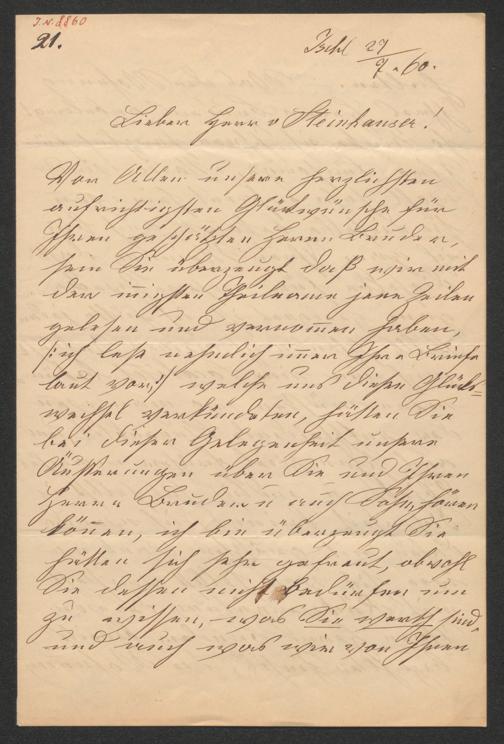 I.N. 8860
21.
Ischl 29/9.60.
Lieber Herr v Steinhauser!
Vor Allem unsere herzlichsten
aufrichtigsten Glückwünsche für
Ihren geschätzten Herrn Bruder,
sein Sie überzeugt daß wir mit
der innigsten Theilname jene Zeilen
gelesen und vernommen haben,
/:ich lese nehmlich immer Ihre Briefe
laut vor:/ welche uns diesen Glücks=
wechsel verkündeten, hätten Sie
bei dieser Gelegenheit unsere
Äußerungen über Sie und Ihren
Herrn Bruder auch hören
können, ich bin überzeugt Sie
hätten sich sehr gefreut, obwohl
Sie dessen nicht bedürfen um
zu wissen, was Sie werth sind,
und auch was wir von Ihnen